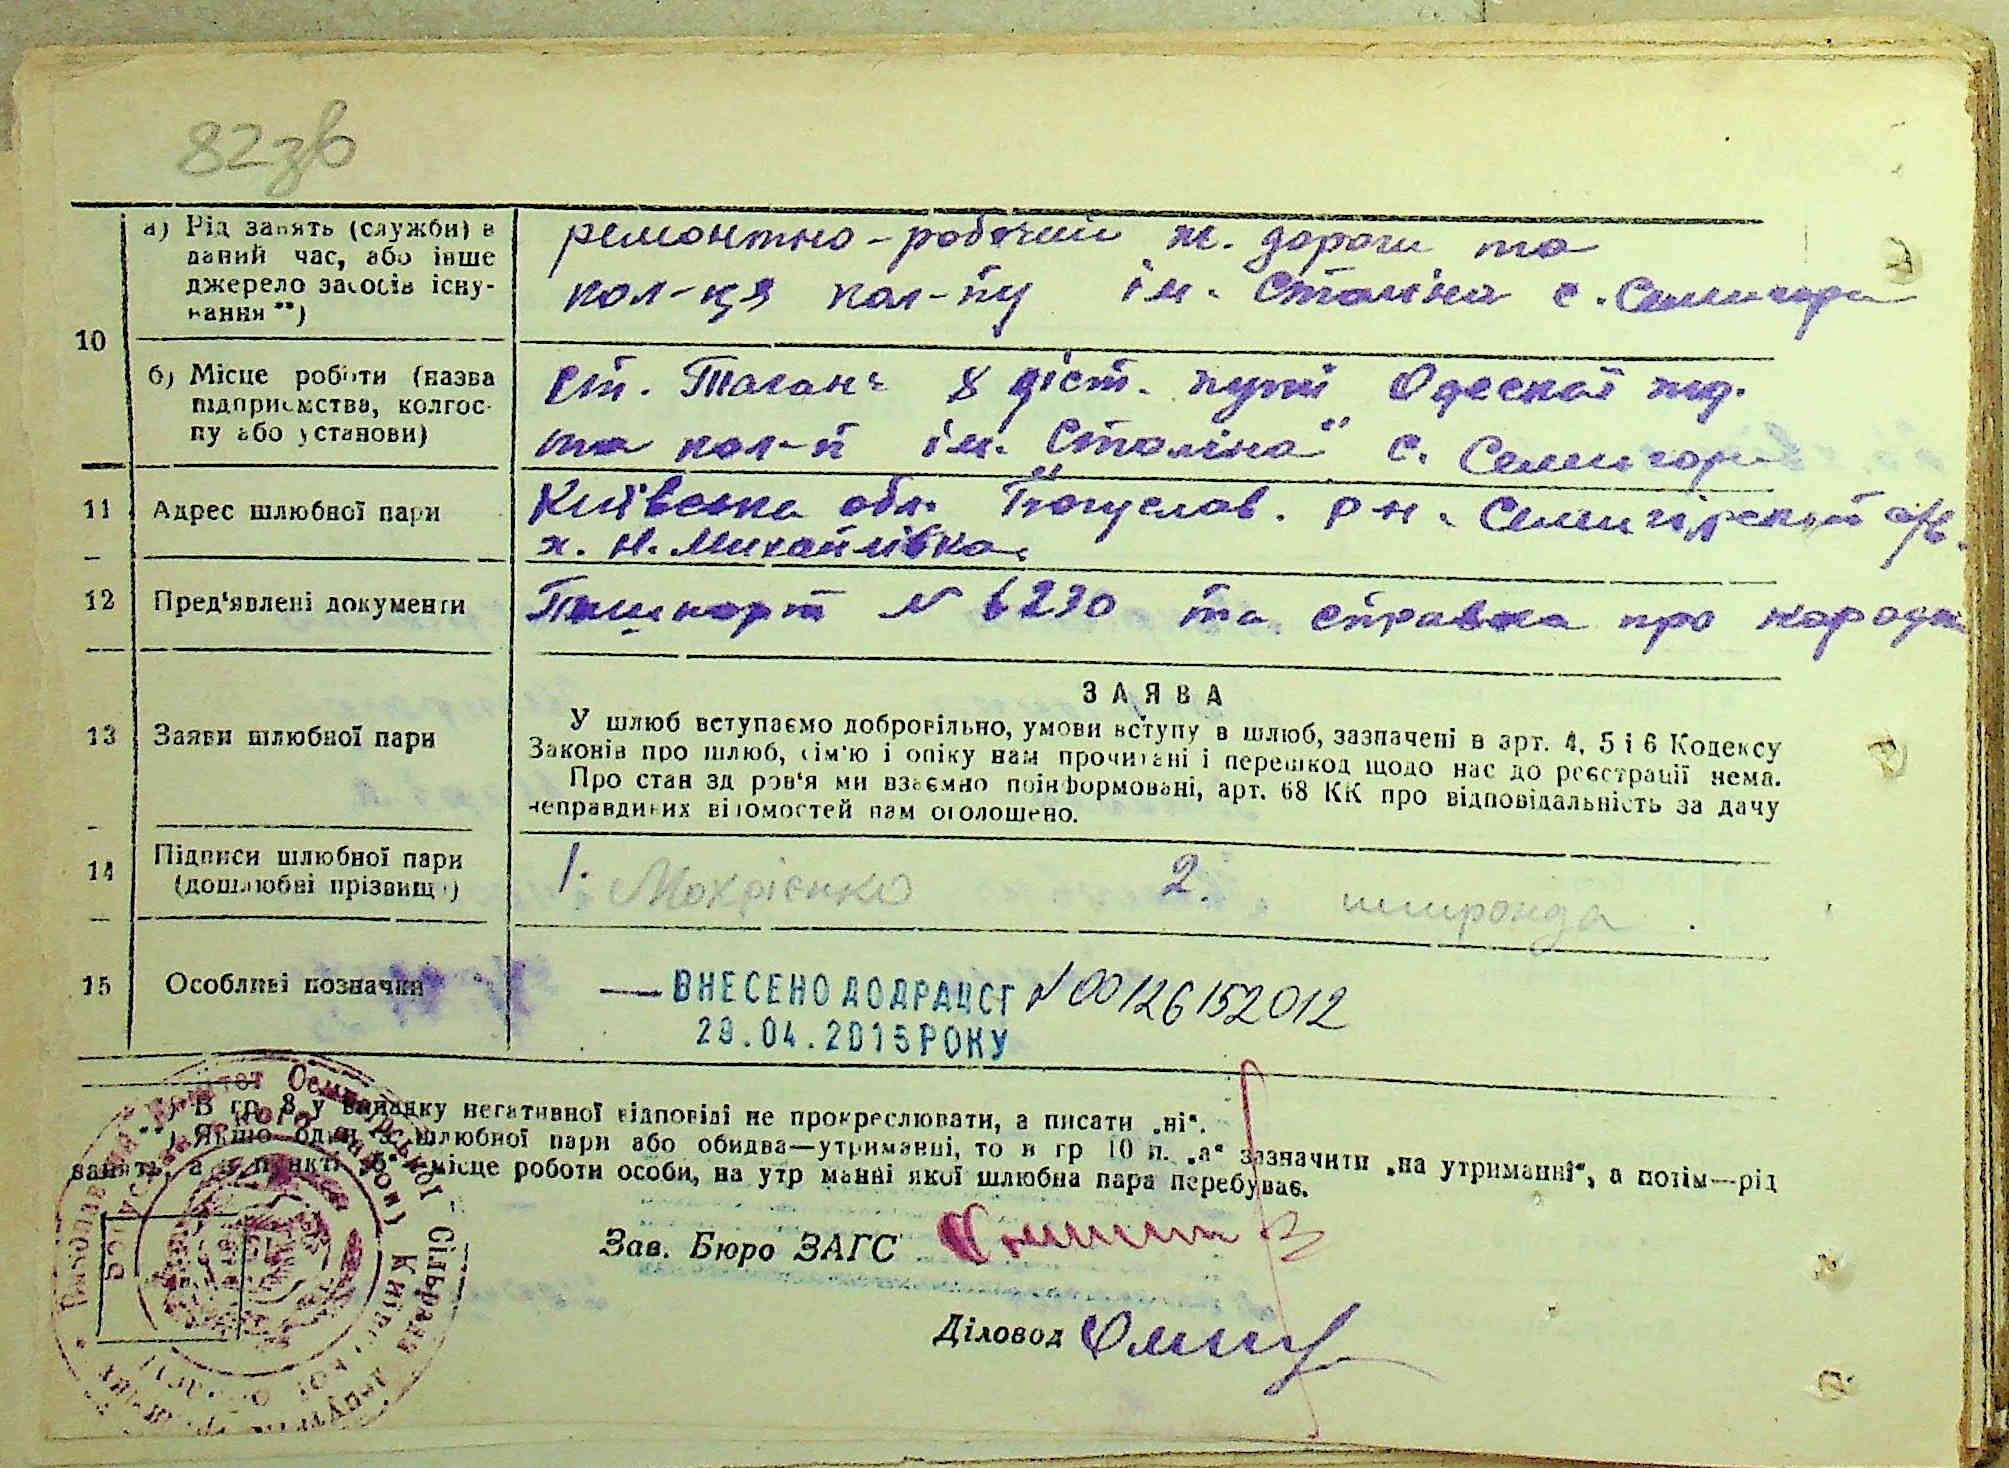 82зв
а) Рід занять (служби) в
даний час, або інше
джерело засобів існу-
вання **)
ремонтно-робочий ж. дороги та
кол-ця кол-пу ім. Сталіна с. Семигори
10
б) Місце роботи (назва
підприємства, колгос-
пу або установи)
ст. Таганч 8 діст. путі Одеської жд.
та кол-п ім. "Сталіна" с. Семигори
11 Адрес шлюбної пари
Київська обл. Богуслав. р-н. Семигірський с/р.
х. Н. Михайлівка
12 Пред'явлені документи
Пашпорт № 6230 та справка про народж
13 Заяви шлюбної пари
ЗАЯВА
У шлюб вступаємо добровільно, умови вступу в шлюб, зазначені в арт. 4, 5 і 6 Кодексу
Законів про шлюб, сім'ю і опіку нам прочитані і перешкод щодо нас до реєстрації нема.
Про стан здоров'я ми взаємно поінформовані, арт. 68 КК про відповідальність за дачу
неправдивих відомостей нам оголошено.
14 Підписи шлюбної пари
(дошлюбні прізвища)
1. Мохрієнко 2. широнда
15 Особливі позначки
— ВНЕСЕНО ДО ДРАЦСГ № 00126152012
29.04.2015 РОКУ
*) В гр. 8 у випадку негативної відповіді не прокреслювати, а писати „ні“.
**) Якщо один з шлюбної пари або обидва—утриманці, то в гр 10 п. „а“ зазначити „на утриманні“, а потім—рід
занять, а в пункті „б“ місце роботи особи, на утриманні якої шлюбна пара перебуває.
Зав. Бюро ЗАГС
Діловод